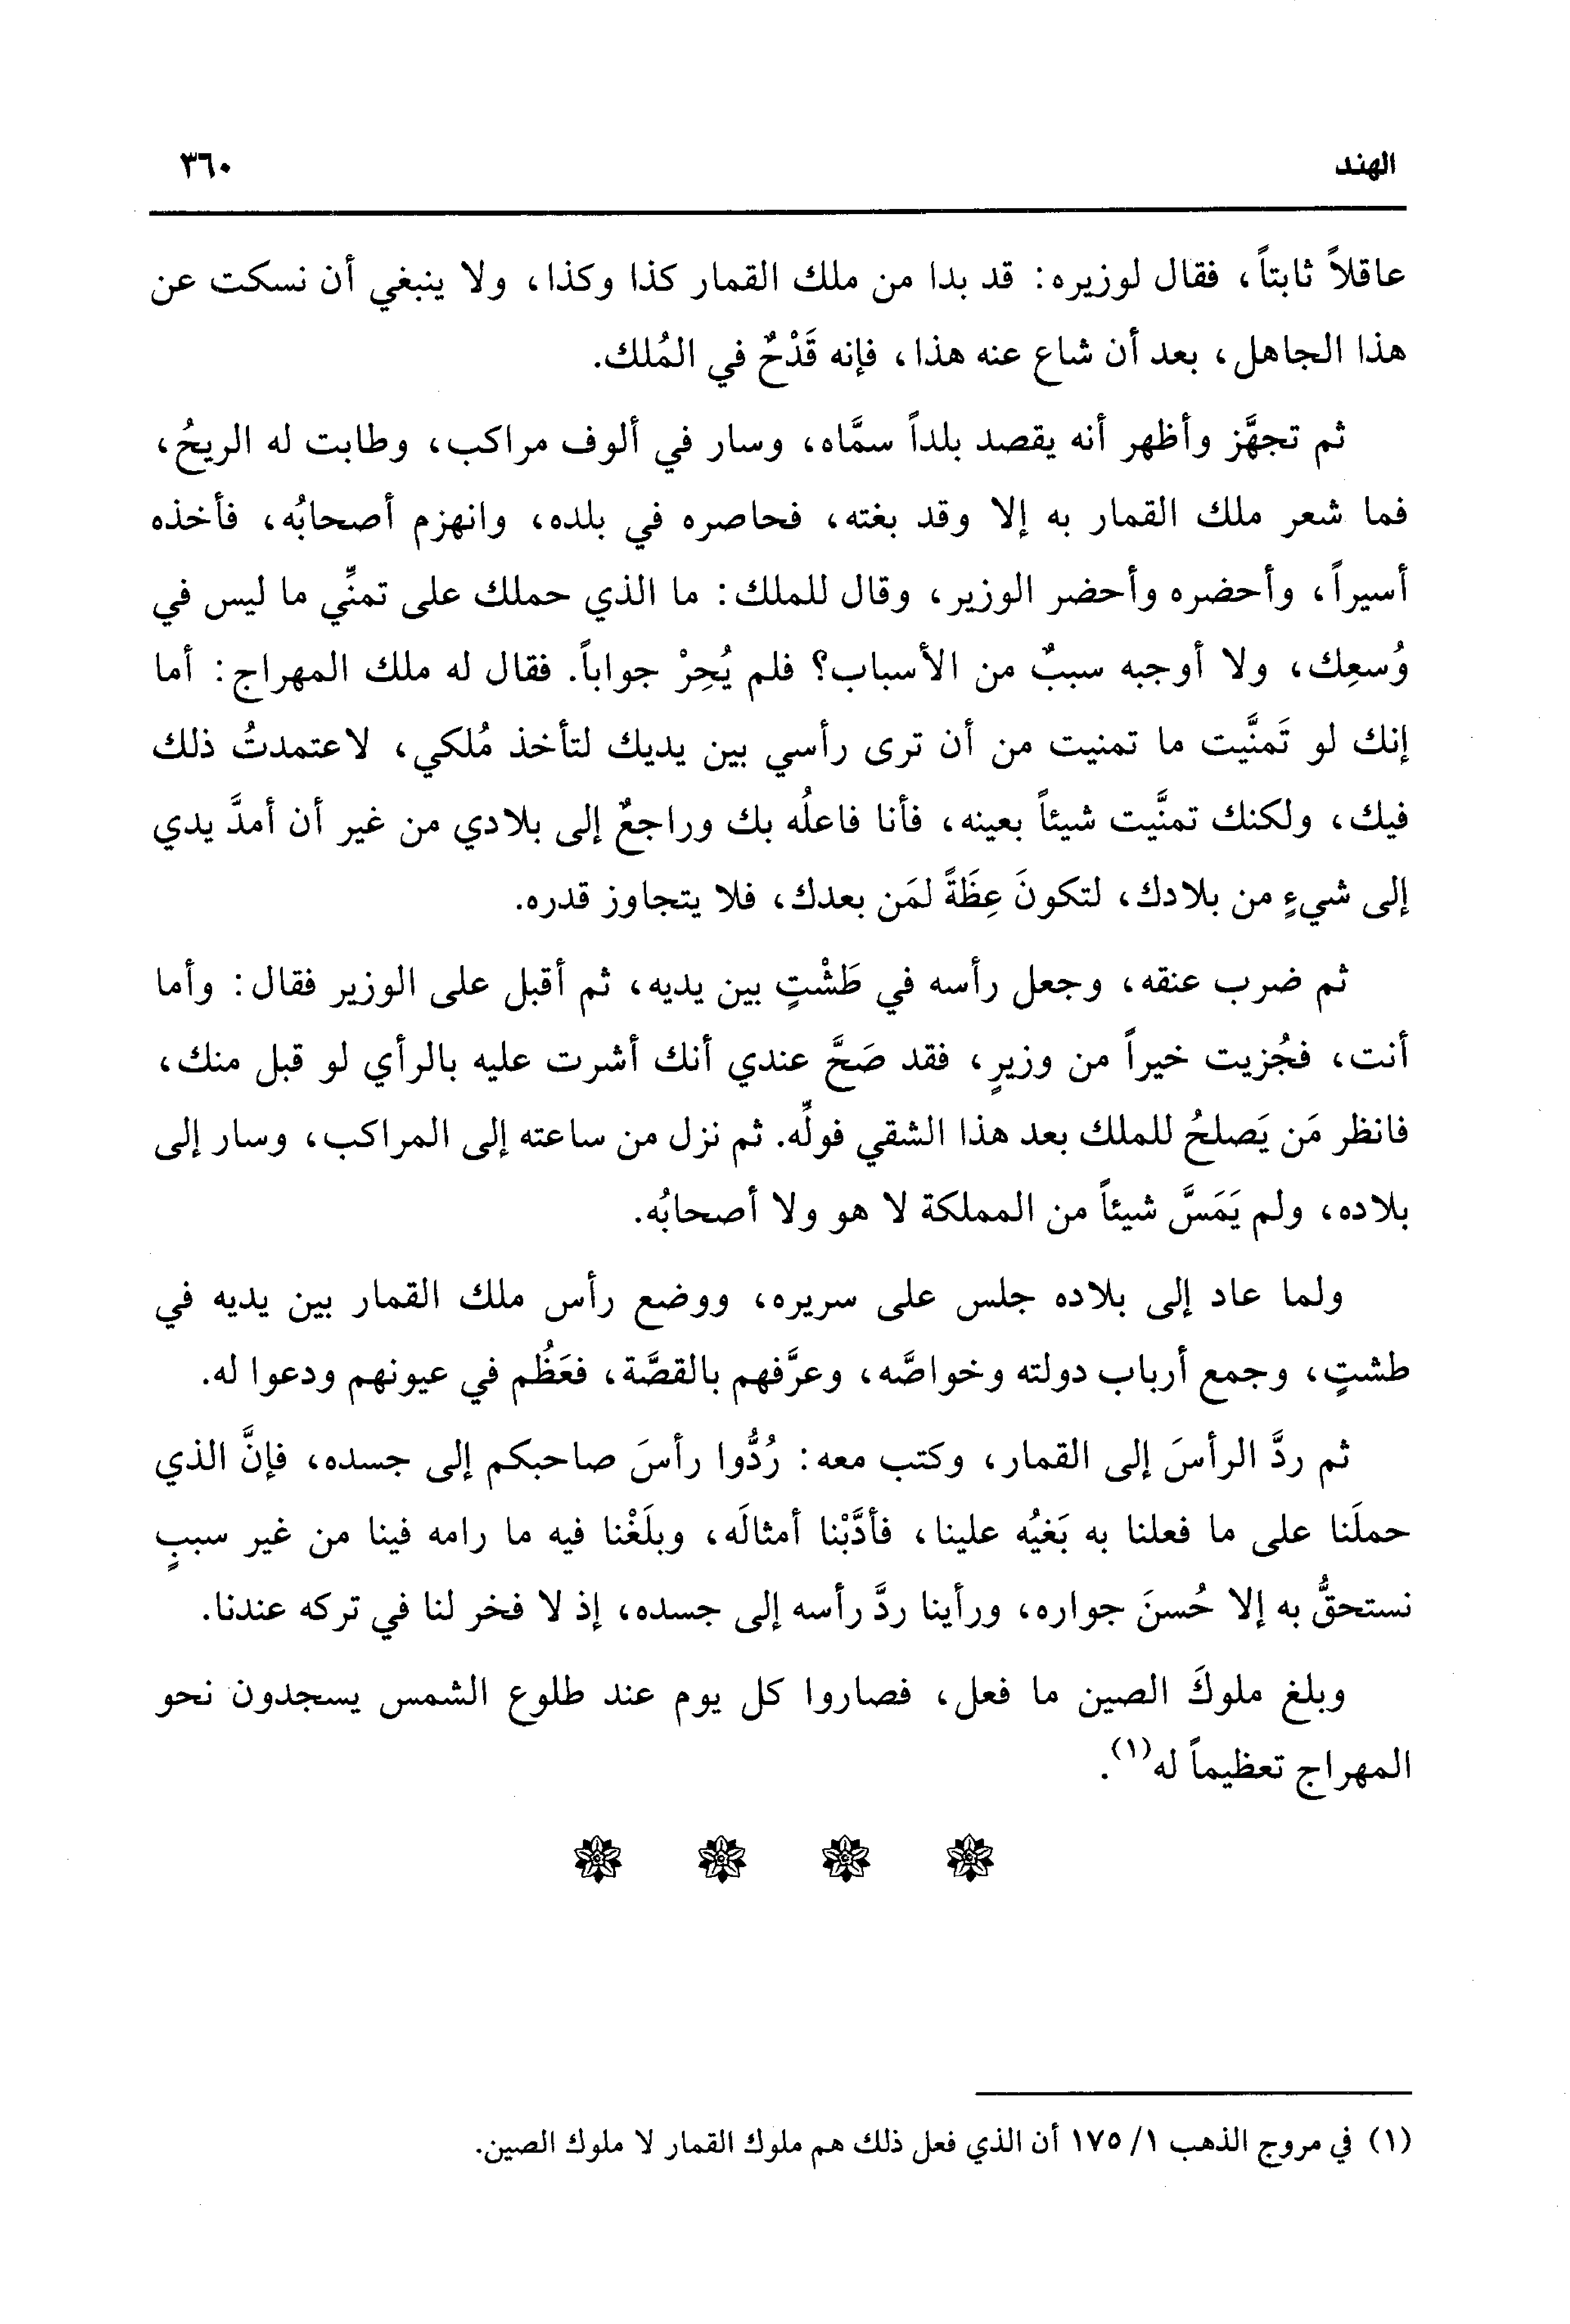 الهند
٣٦٠
عاقلاً ثابتاً، فقال لوزيره: قد بدا من ملك القمار كذا وكذا، ولا ينبغي أن نسكت عن
هذا الجاهل، بعد أن شاع عنه هذا، فإنه قَدْحٌ في المُلك.
ثم تجهَّز وأظهر أنه يقصد بلداً سمَّاه، وسار في ألوف مراكب، وطابت له الريحُ،
فما شعر ملك القمار به إلا وقد بغته، فحاصره في بلده، وانهزم أصحابُه، فأخذه
أسيراً، وأحضره وأحضر الوزير، وقال للملك: ما الذي حملك على تمنِّي ما ليس في
وُسعِك، ولا أوجبه سببٌ من الأسباب؟ فلم يُحِرْ جواباً. فقال له ملك المهراج: أما
إنك لو تَمنَّيت ما تمنيت من أن ترى رأسي بين يديك لتأخذ مُلكي، لاعتمدتُ ذلك
فيك، ولكنك تمنَّيت شيئاً بعينه، فأنا فاعلُه بك وراجعٌ إلى بلادي من غير أن أمدَّ يدي
إلى شيءٍ من بلادك، لتكونَ عِظَةً لمَن بعدك، فلا يتجاوز قدره.
ثم ضرب عنقه، وجعل رأسه في طَشْتٍ بين يديه، ثم أقبل على الوزير فقال: وأما
أنت، فجُزيت خيراً من وزيرٍ، فقد صَحَّ عندي أنك أشرت عليه بالرأي لو قبل منك،
فانظر مَن يَصلحُ للملك بعد هذا الشقي فولِّه. ثم نزل من ساعته إلى المراكب، وسار إلى
بلاده، ولم يَمَسَّ شيئاً من المملكة لا هو ولا أصحابُه.
ولما عاد إلى بلاده جلس على سريره، ووضع رأس ملك القمار بين يديه في
طشتٍ، وجمع أرباب دولته وخواصَّه، وعرَّفهم بالقصَّة، فعَظُم في عيونهم ودعوا له.
ثم ردَّ الرأسَ إلى القمار، وكتب معه: رُدُّوا رأسَ صاحبكم إلى جسده، فإنَّ الذي
حملَنا على ما فعلنا به بَغيُه علينا، فأدَّبْنا أمثالَه، وبلَغْنا فيه ما رامه فينا من غير سببٍ
نستحقُّ به إلا حُسنَ جواره، ورأينا ردَّ رأسه إلى جسده، إذ لا فخر لنا في تركه عندنا.
وبلغ ملوكَ الصين ما فعل، فصاروا كل يوم عند طلوع الشمس يسجدون نحو
المهراج تعظيماً له(١).
(١) في مروج الذهب ١/ ١٧٥ أن الذي فعل ذلك هم ملوك القمار لا ملوك الصين.